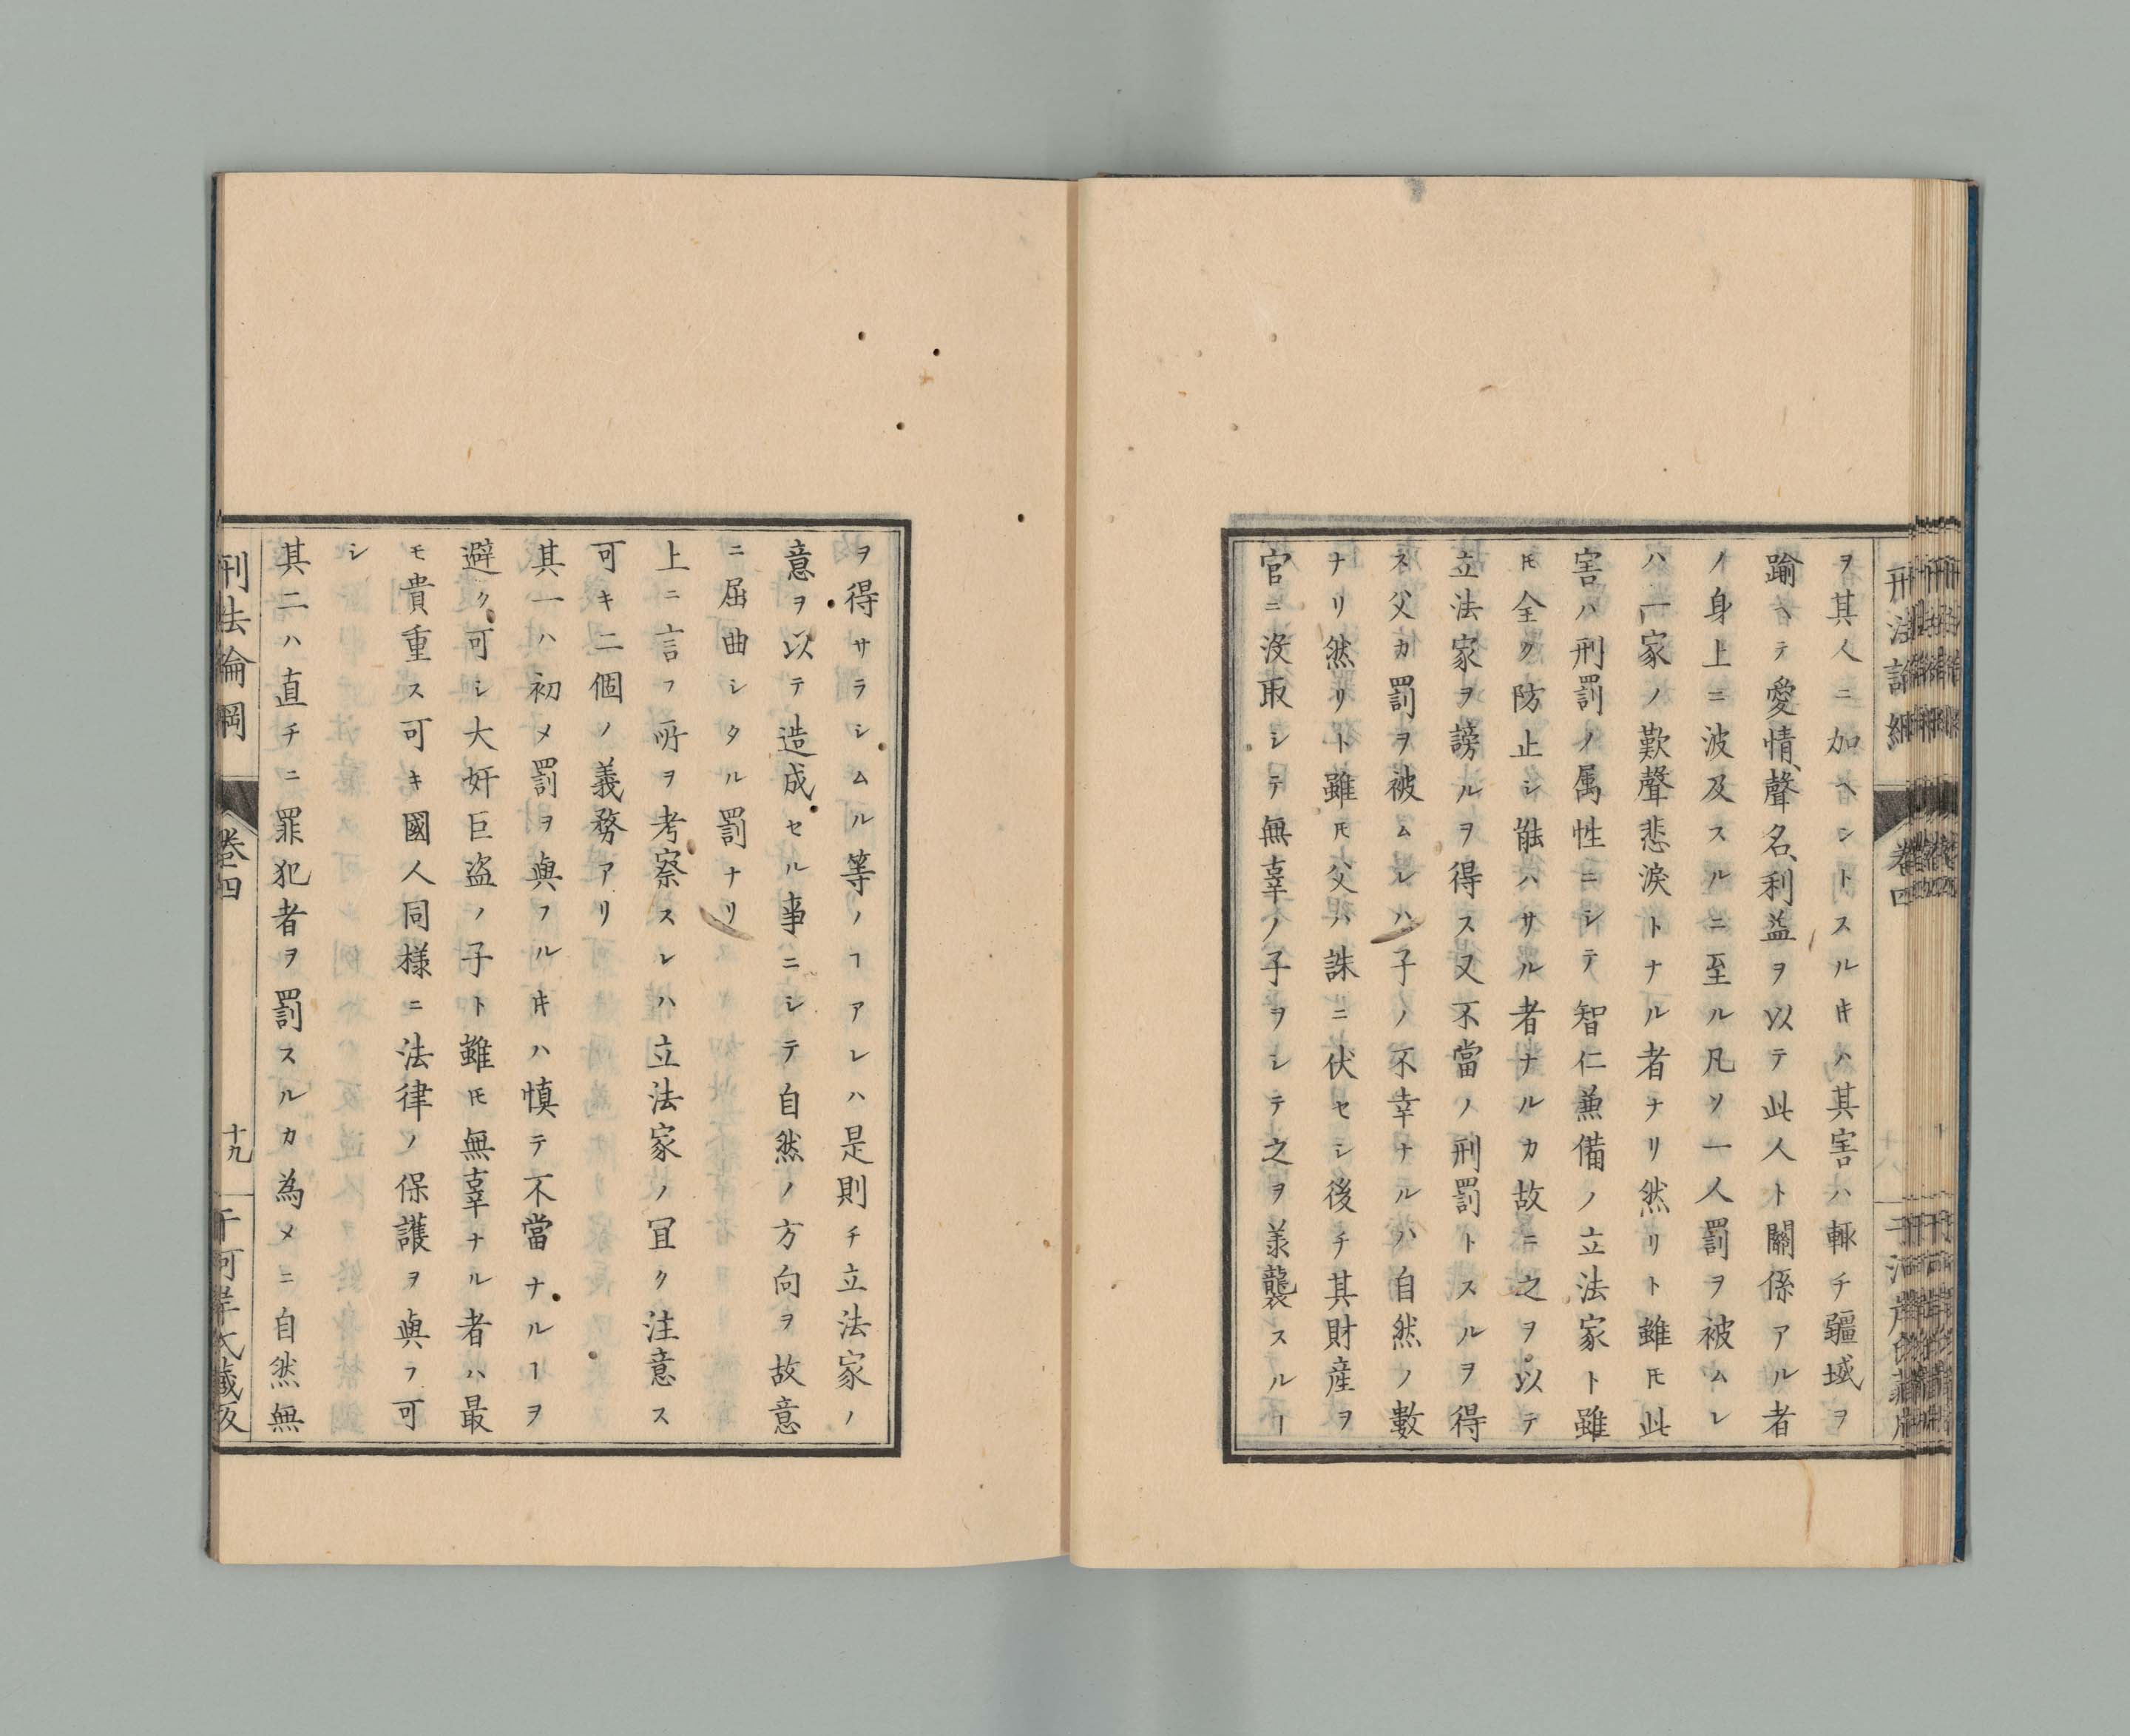 ヲ其人ニ加ヘントスルヰハ其害ハ輙チ疆域ヲ
踰ヘテ愛情、聲名、利益ヲ以テ此人ト關係アル者
ノ身上ニ波及スルニ至ル凡ソ一人罰ヲ被ムレ
ハ一家ノ歎聲悲淚トナル者ナリ然リト雖𪜈此
害ハ刑罰ノ属性ニシテ智仁兼備ノ立法家ト雖
𪜈全ク防止シ能ハサル者ナルカ故ニ之ヲ以テ
立法家ヲ謗ルヲ得ス又不當ノ刑罰トスルヲ得
ス父カ罰ヲ被ムレハ子ノ不幸ナルハ自然ノ數
ナリ然リト雖𪜈父ハ誅ニ伏セシ後チ其財産ヲ
官ニ沒取シテ無辜ノ子ヲシテ之ヲ羕襲スルヿ
ヲ得サラシムル等ノヿアレハ是則チ立法家ノ
意ヲ以テ造成セル事ニシテ自然ノ方向ヲ故意
ニ屈曲シタル罰ナリ
上ニ言フ所ヲ考察スレハ立法家ノ冝ク注意ス
可キ二個ノ義務アリ
其一ハ初メ罰ヲ與フルヰハ慎テ不當ナルヿヲ
避ク可シ大奸巨盜ノ子ト雖𪜈無辜ナル者ハ最
モ貴重ス可キ國人同様ニ法律ノ保護ヲ與フ可
シ
其二ハ直チニ罪犯者ヲ罰スルカ為メニ自然無
刑法論綱
卷四
十九